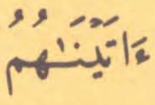 ءَاتَيْنَٰهُمُ